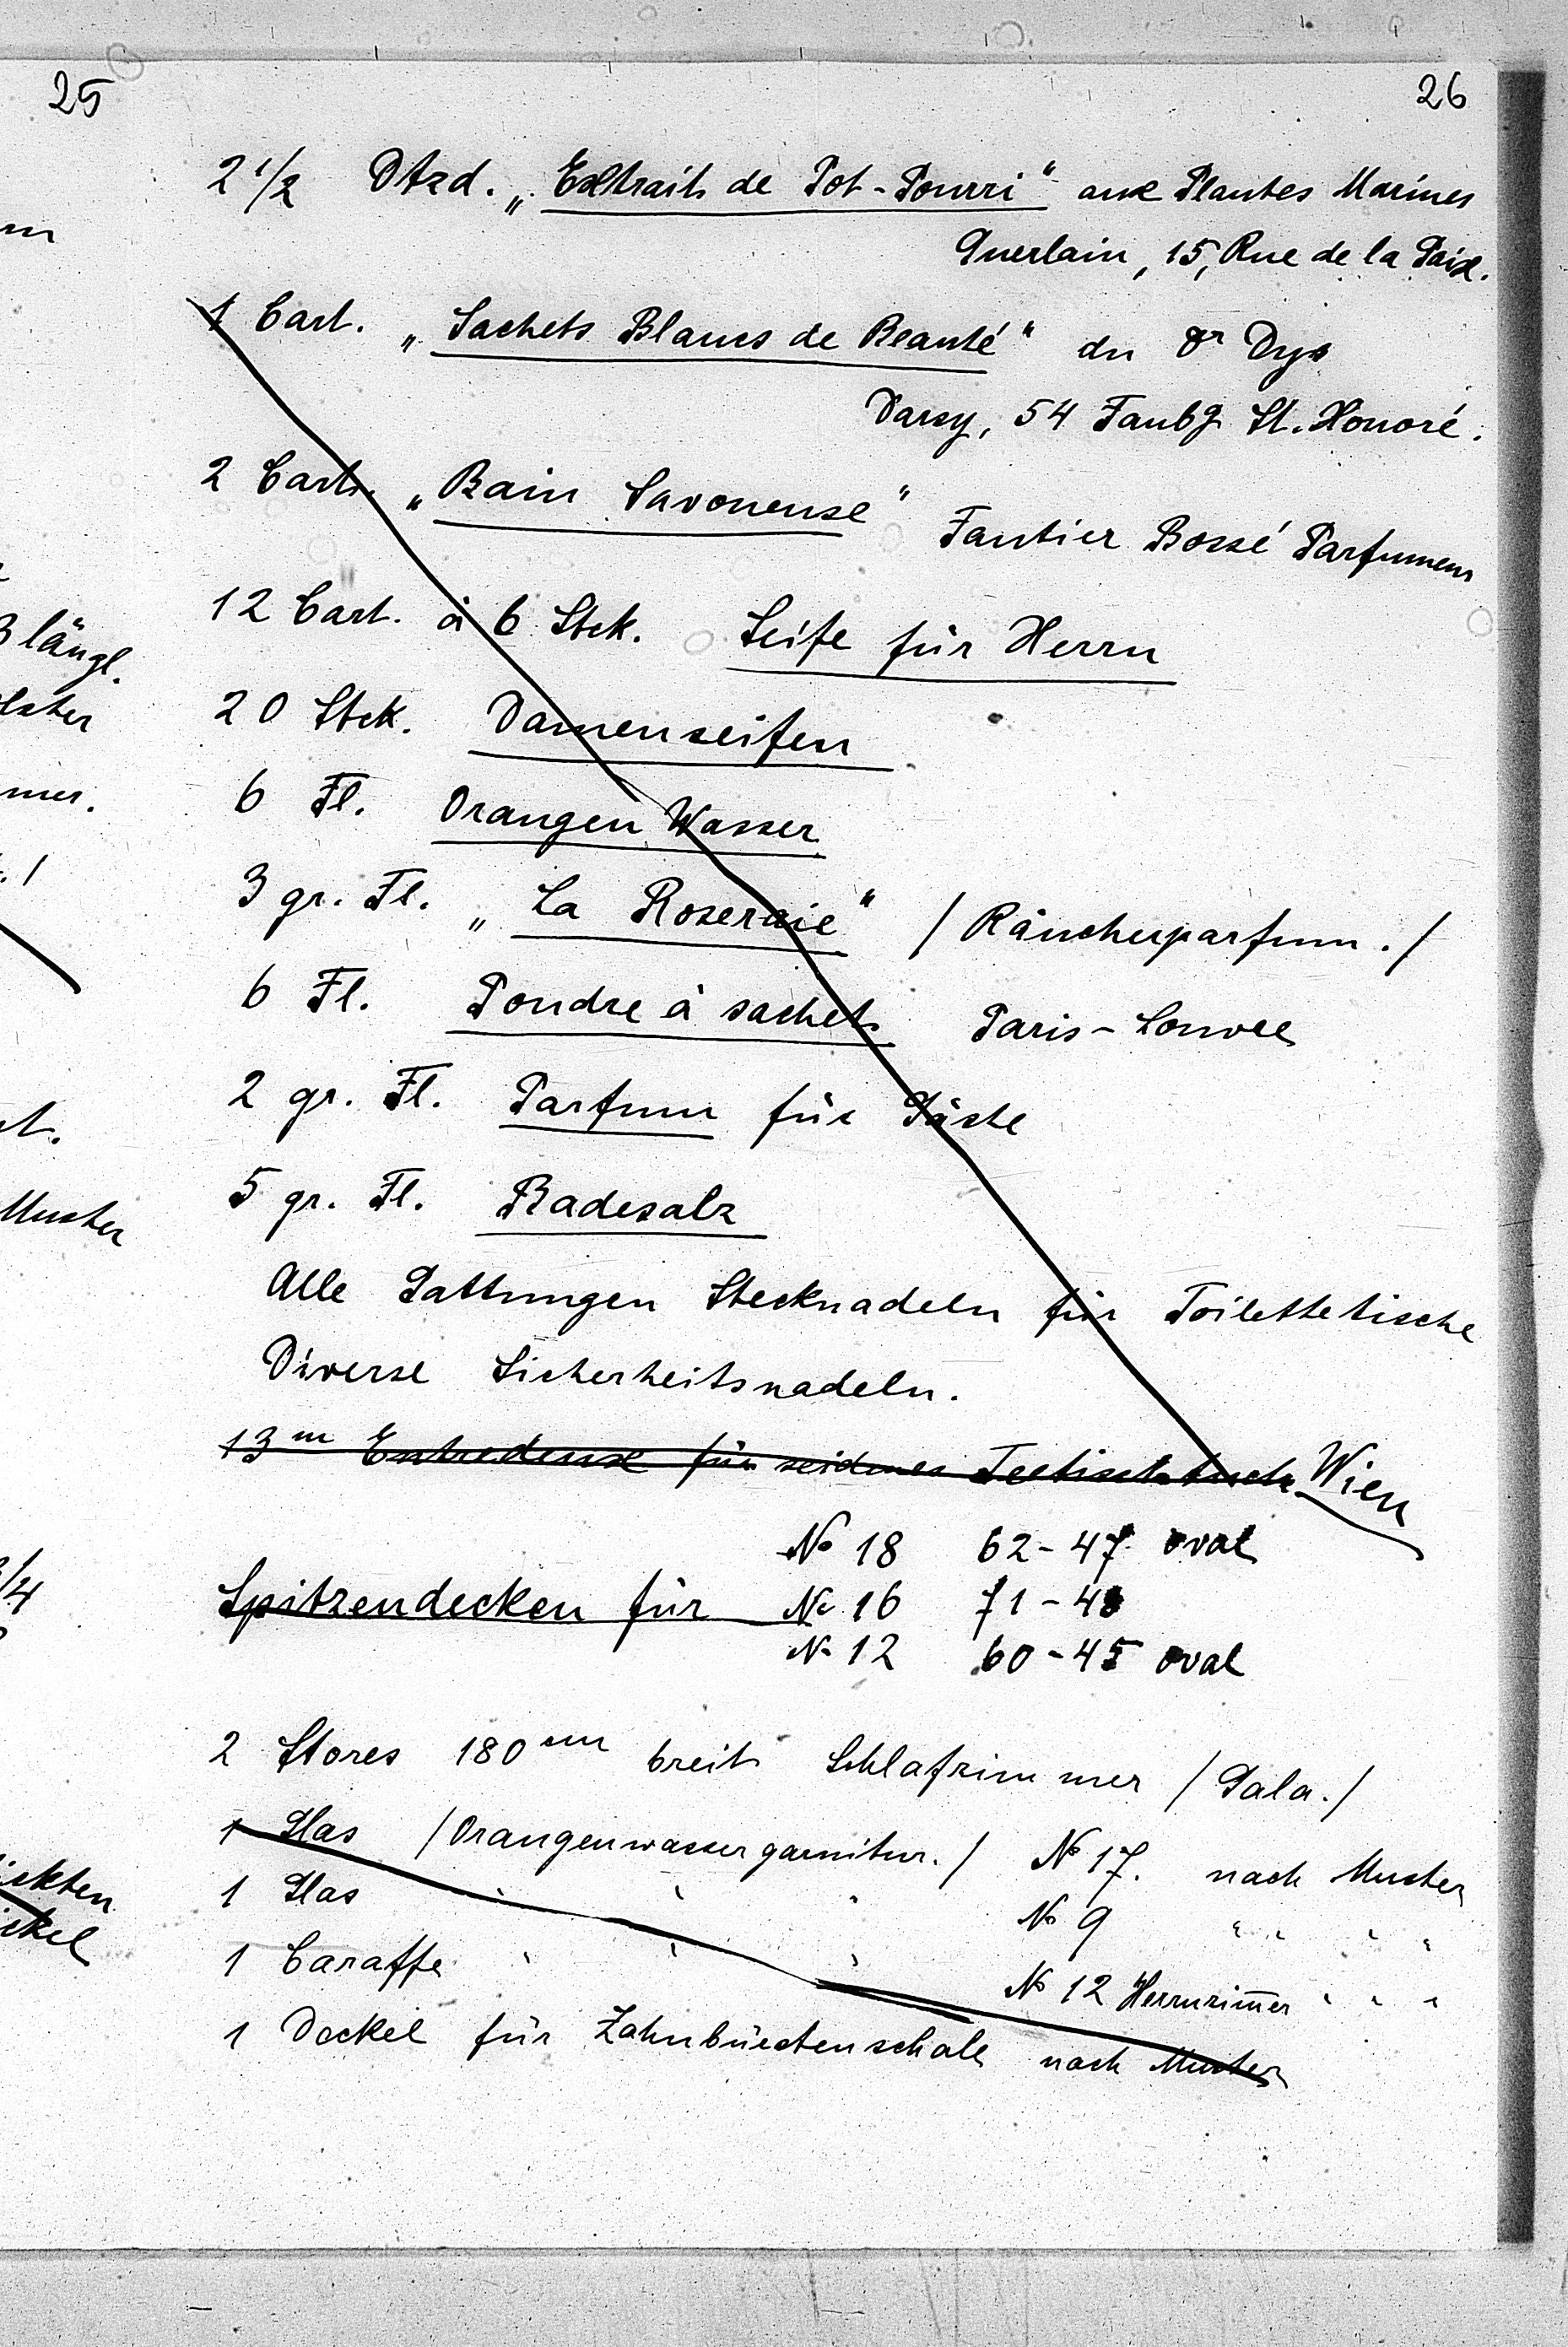 25
26
2 1/2 Dtzd. „Extraits de Pot-Pourri" aux Plantes Marines
Guerlain, 15, Rue de la Paix.
1 Cart. „Sachets Blancs de Beauté" du Dr Dys
Darsy, 54 Faubg St. Honoré.
2 Cart. „Bain Savoneuse" Fautier Bossé Parfumeur
12 Cart. à 6 Stck. Seife für Herrn
20 Stck. Damenseifen
6 Fl. Orangen Wasser
3 gr. Fl. „La Roseraie" /Räucherparfum./
6 Fl. Poudre à sachets Paris-Louvre
2 gr. Fl. Parfum für Gäste
5 gr. Fl. Badesalz
Alle Gattungen Stecknadeln für Toilettetische
Diverse Sicherheitsnadeln.
13 m Entredeuse für seidenes Teetischtuch Wien
No 18 62-47 oval
Spitzendecken für No 16 71-48
No 12 60-45 oval
2 Stores 180 cm breit Schlafzimmer /Gala./
1 Glas /Orangenwassergarnitur./ No 17. nach Muster
1 Glas " " No 9 " " " "
1 Caraffe " " " No 12 Herrnzimmer " " "
1 Deckel für Zahnbürstenschale nach Muster
längl.
Muster
3/4